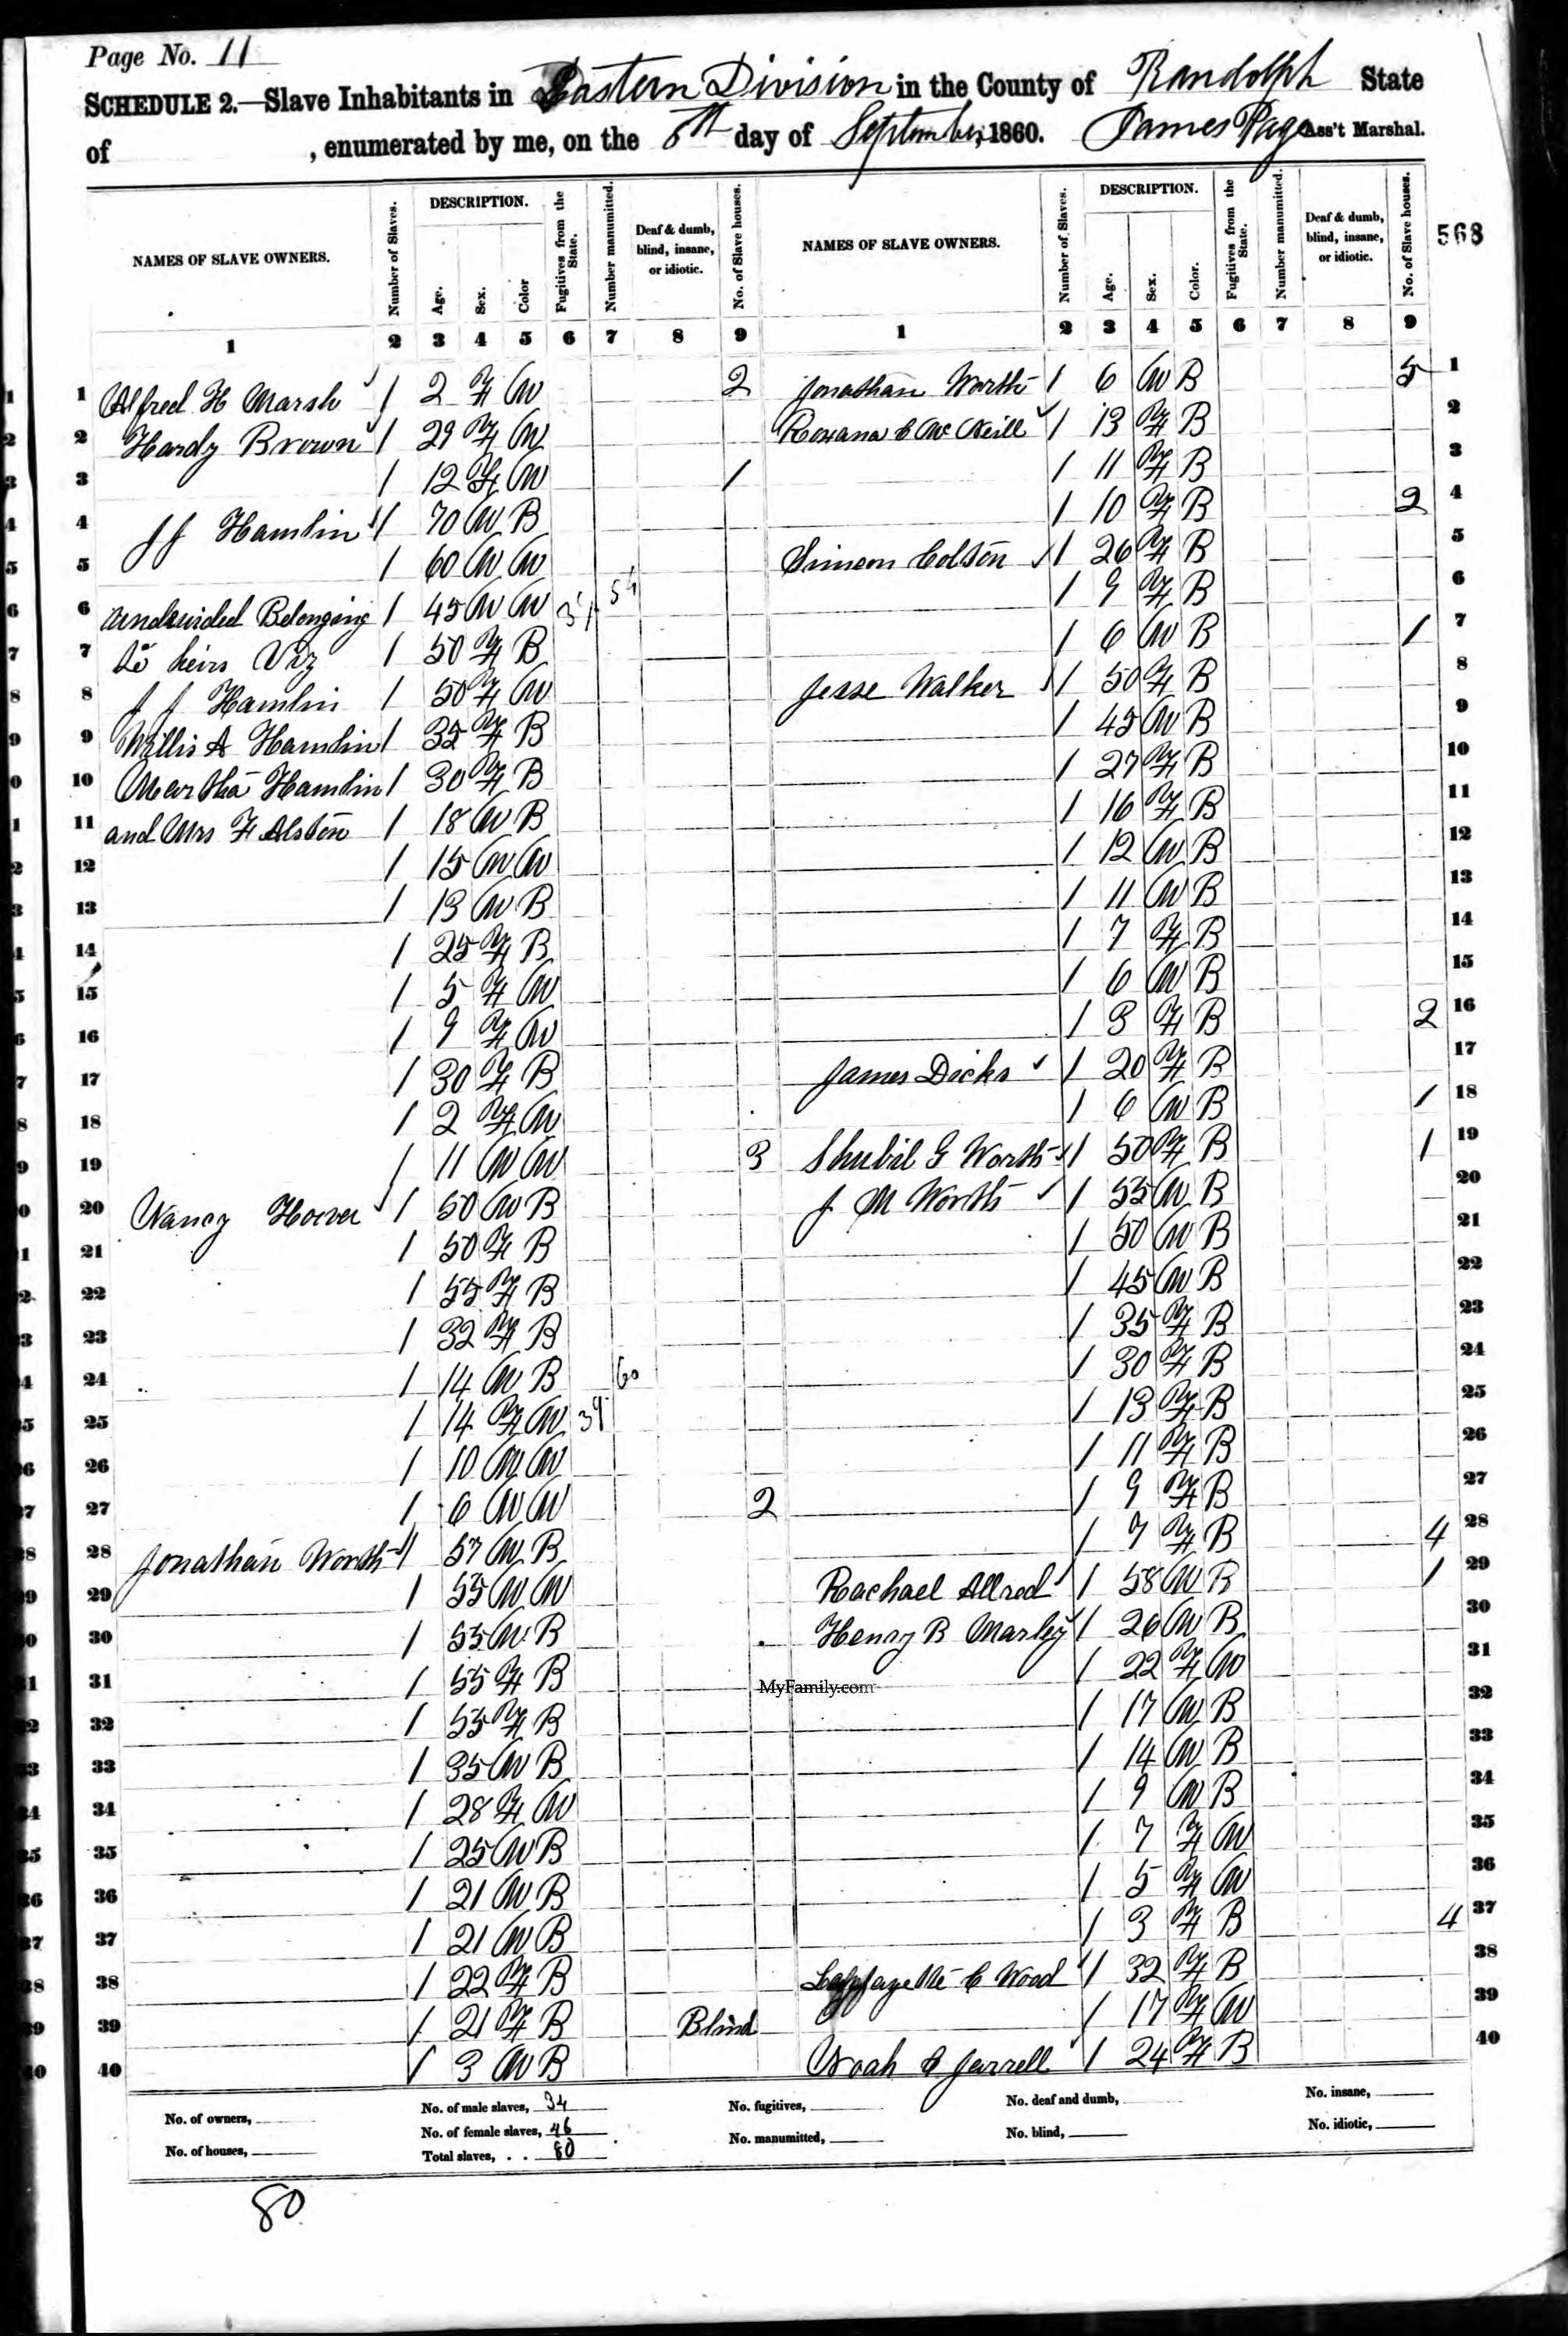 Page No. 11
SCHEDULE 2.—Slave Inhabitants in Eastern Division in the County of Randolph State
of , enumerated by me, on the 6th day of September, 1860. James Page Ass't Marshal.
568
NAMES OF SLAVE OWNERS. Number of Slaves. DESCRIPTION. Age. Sex. Color Fugitives from the State. Number manumitted. Deaf & dumb, blind, insane, or idiotic. No. of Slave houses. NAMES OF SLAVE OWNERS. Number of Slaves. DESCRIPTION. Age. Sex. Color. Fugitives from the State. Number manumitted. Deaf & dumb, blind, insane, or idiotic. No. of Slave houses.
1 2 3 4 5 6 7 8 9 1 2 3 4 5 6 7 8 9
1 Alfred H Marsh 1 2 F M 2 Jonathan Worth 1 6 M B 5 1
2 Hardy Brown 1 29 F M Roxana C Mc Neill 1 13 F B 2
3 1 12 F M 1 1 11 F B 3
4 J J Hamlin 1 70 M B 1 10 F B 2 4
5 1 60 M M Simeon Colston 1 26 F B 5
6 Undivided Belonging 1 45 M M 1 9 F B 6
7 to heirs Viz 1 50 F B 1 6 M B 1 7
8 J J Hamlin 1 50 F M Jesse Walker 1 50 F B 8
9 Willis A Hamlin 1 35 F B 1 45 M B 9
10 Martha Hamlin 1 30 F B 1 27 F B 10
11 and Mrs F Alston 1 18 M B 1 16 F B 11
12 1 15 M M 1 12 M B 12
13 1 13 M B 1 11 M B 13
14 1 25 F B 1 7 F B 14
15 1 5 F M 1 6 M B 15
16 1 9 F M 1 3 F B 2 16
17 1 30 F B James Dicks 1 20 F B 17
18 1 2 F M 1 6 M B 1 18
19 1 11 M M 3 Shubil G Worth 1 50 F B 1 19
20 Nancy Hoover 1 50 M B J M Worth 1 55 M B 20
21 1 50 F B 1 50 M B 21
22 1 55 F B 1 45 M B 22
23 1 32 F B 1 35 F B 23
24 1 14 M B 60 1 30 F B 24
25 1 14 F M 39 1 13 F B 25
26 1 10 M M 1 11 F B 26
27 1 6 M M 2 1 9 F B 27
28 Jonathan Worth 1 57 M B 1 7 F B 4 28
29 1 55 M M Rachael Allred 1 58 M B 1 29
30 1 55 M B Henry B Marley 1 26 M B 30
31 1 55 F B 1 22 F M 31
MyFamily.com
32 1 55 F B 1 17 M B 32
33 1 35 M B 1 14 M B 33
34 1 28 F M 1 9 M B 34
35 1 25 M B 1 7 F M 35
36 1 21 M B 1 5 F M 36
37 1 21 M B 1 3 F B 4 37
38 1 22 F B Laffayette C Wood 1 32 F B 38
39 1 21 F B Blind 1 17 F M 39
40 1 3 M B Noah C Jarrell 1 24 F B 40
No. of owners, No. of male slaves, 34 No. fugitives, No. deaf and dumb, No. insane,
No. of houses, No. of female slaves, 46 No. manumitted, No. blind, No. idiotic,
Total slaves, . . 80
80